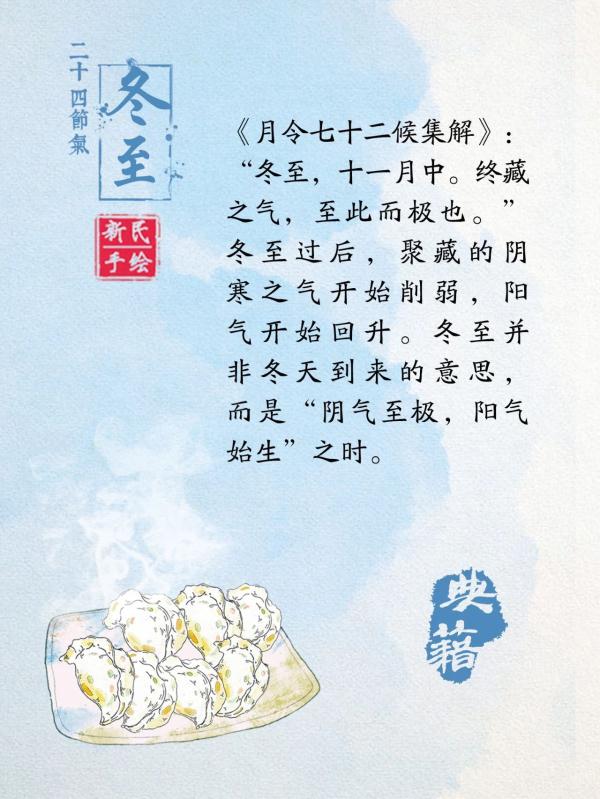 二十四節氣
冬至
新民
手绘
《月令七十二候集解》：
“冬至，十一月中。终藏
之气，至此而极也。”
冬至过后，聚藏的阴
寒之气开始削弱，阳
气开始回升。冬至并
非冬天到来的意思，
而是“阴气至极，阳气
始生”之时。
典藉